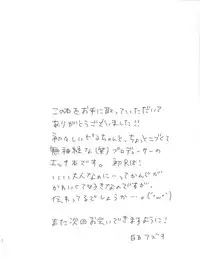 この本をお手に取っていただいて
ありがとうございました!!
初々しい ちゃんと、ちょっと
無神経な(笑)プロデューサーの
エッチ本です。
いい大人なのに…ってかんじが
かわいくて好きなんですが、
伝わってるでしょうか…。(´・ω・`)
また次回お会いできますように!